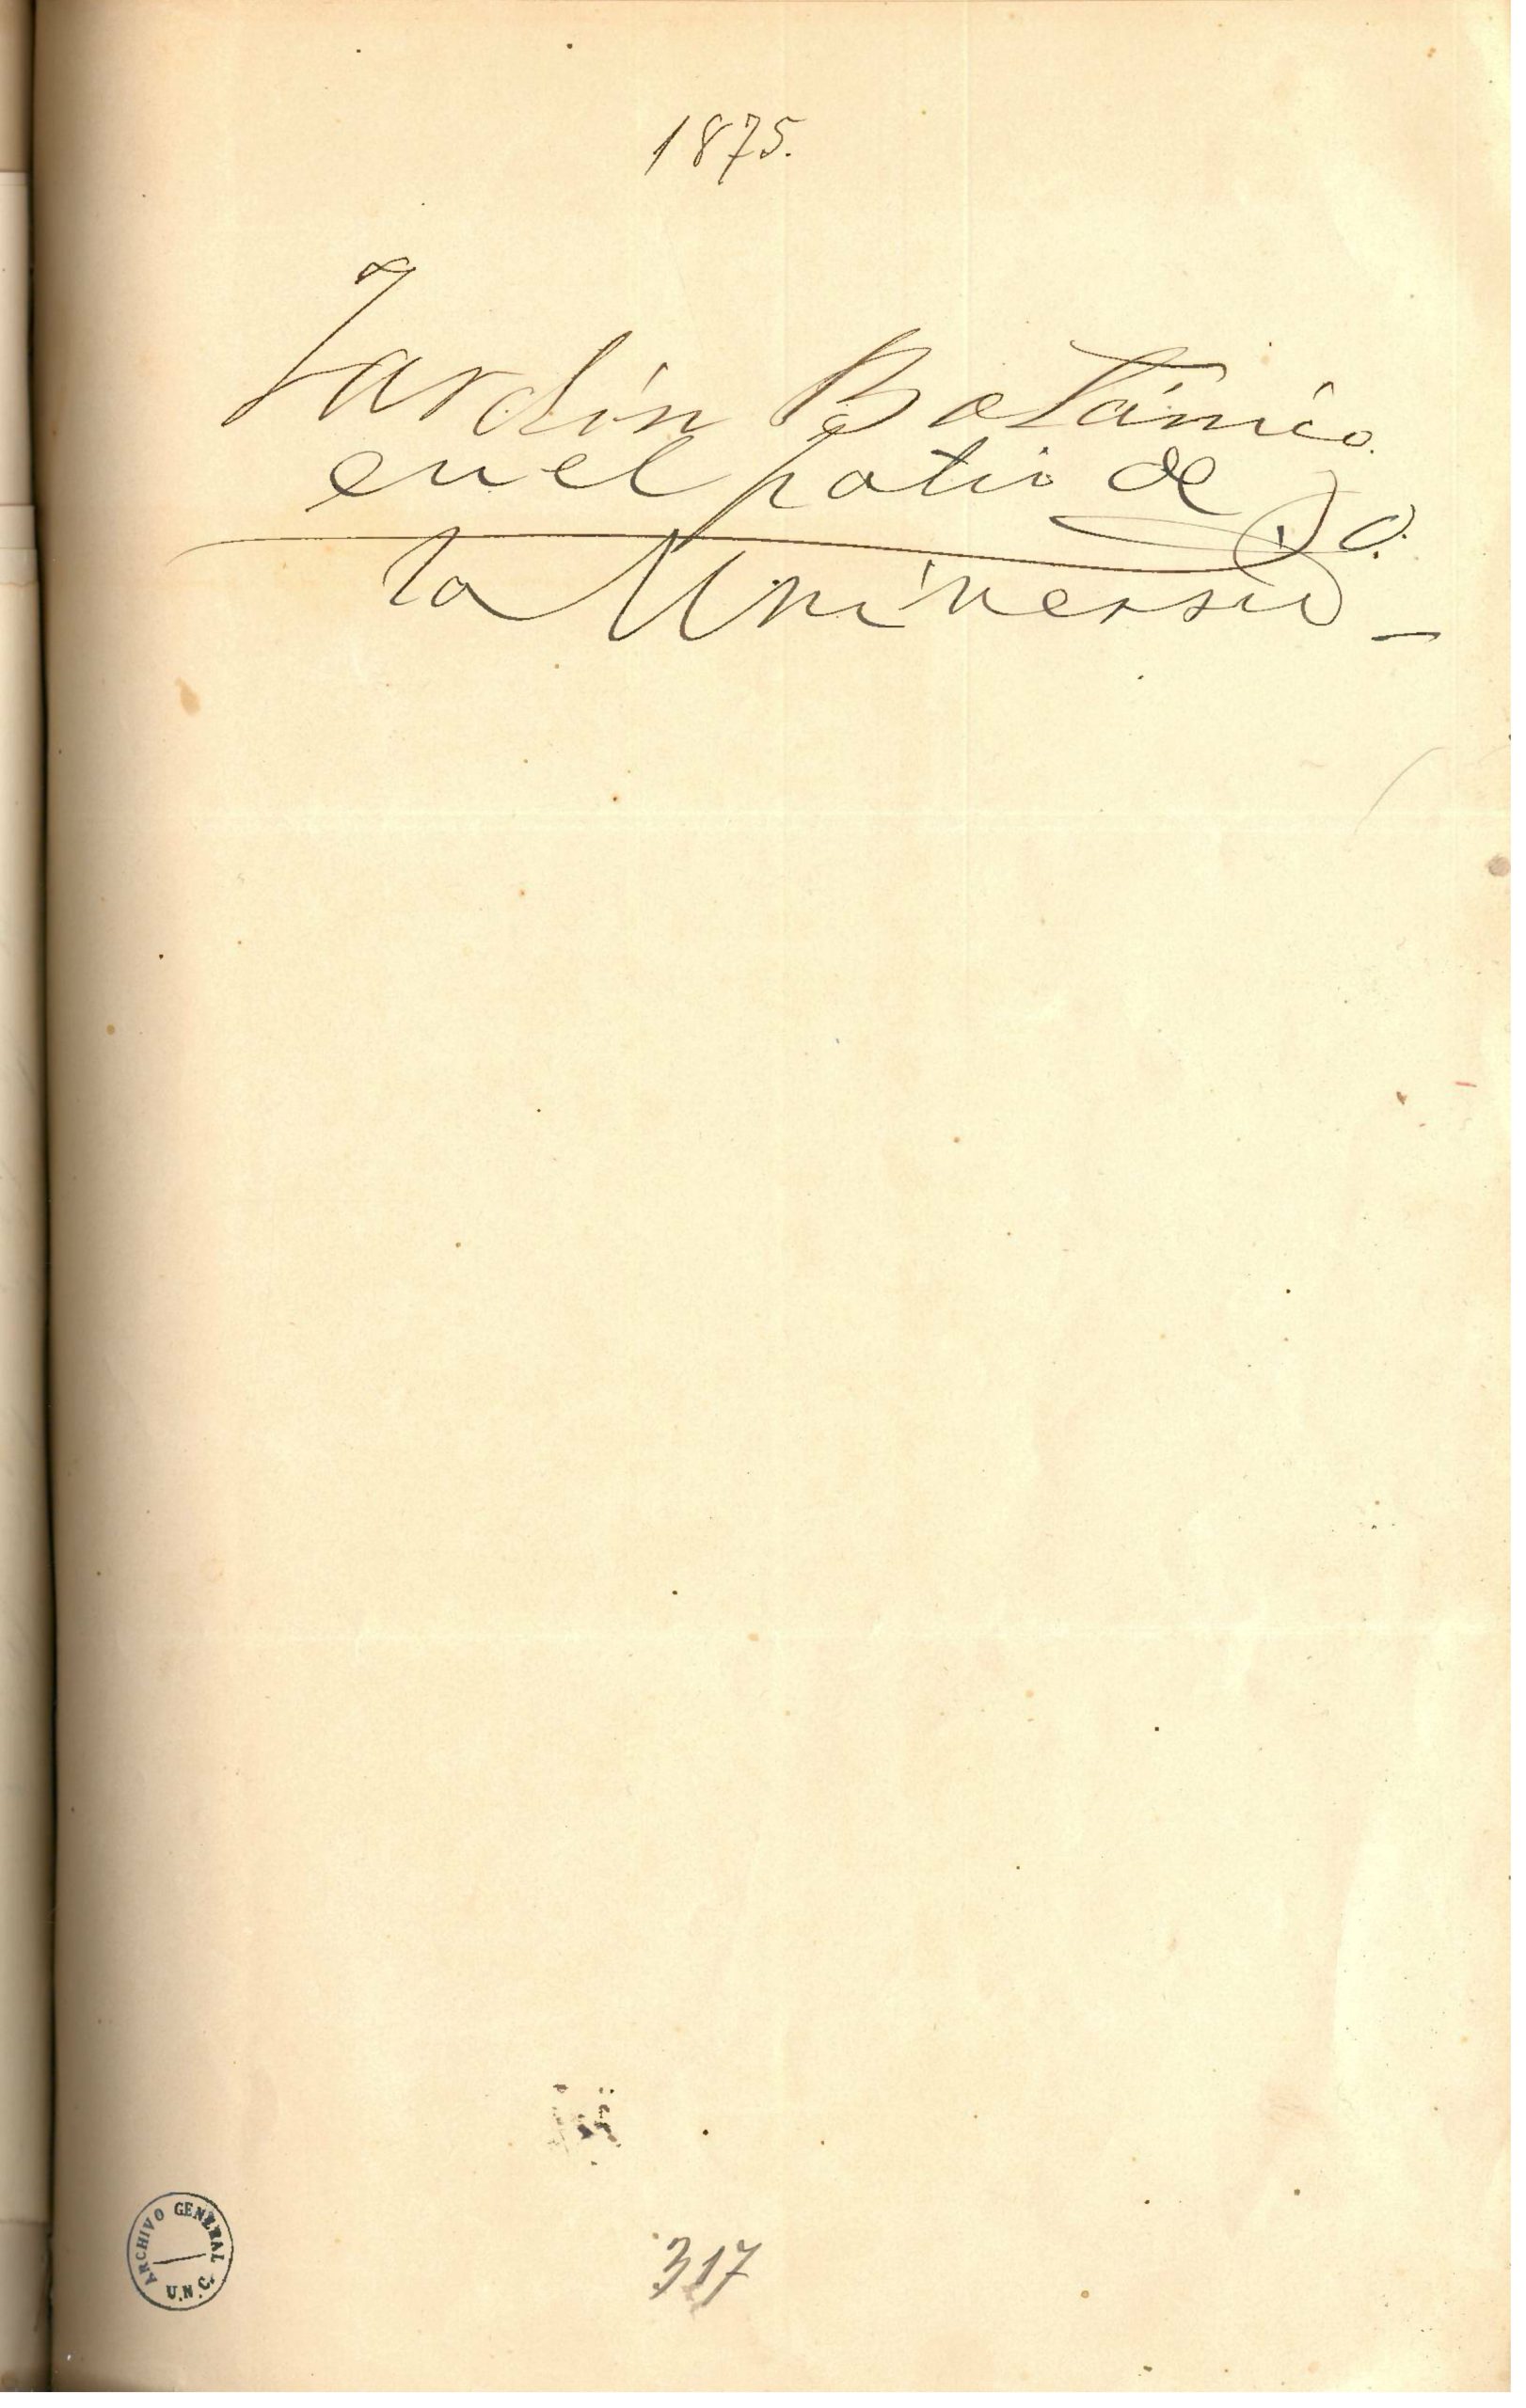 1875.
Jardín Botánico.
en el patio de
la Universid
ARCHIVO GENERAL
U.N.C.
317